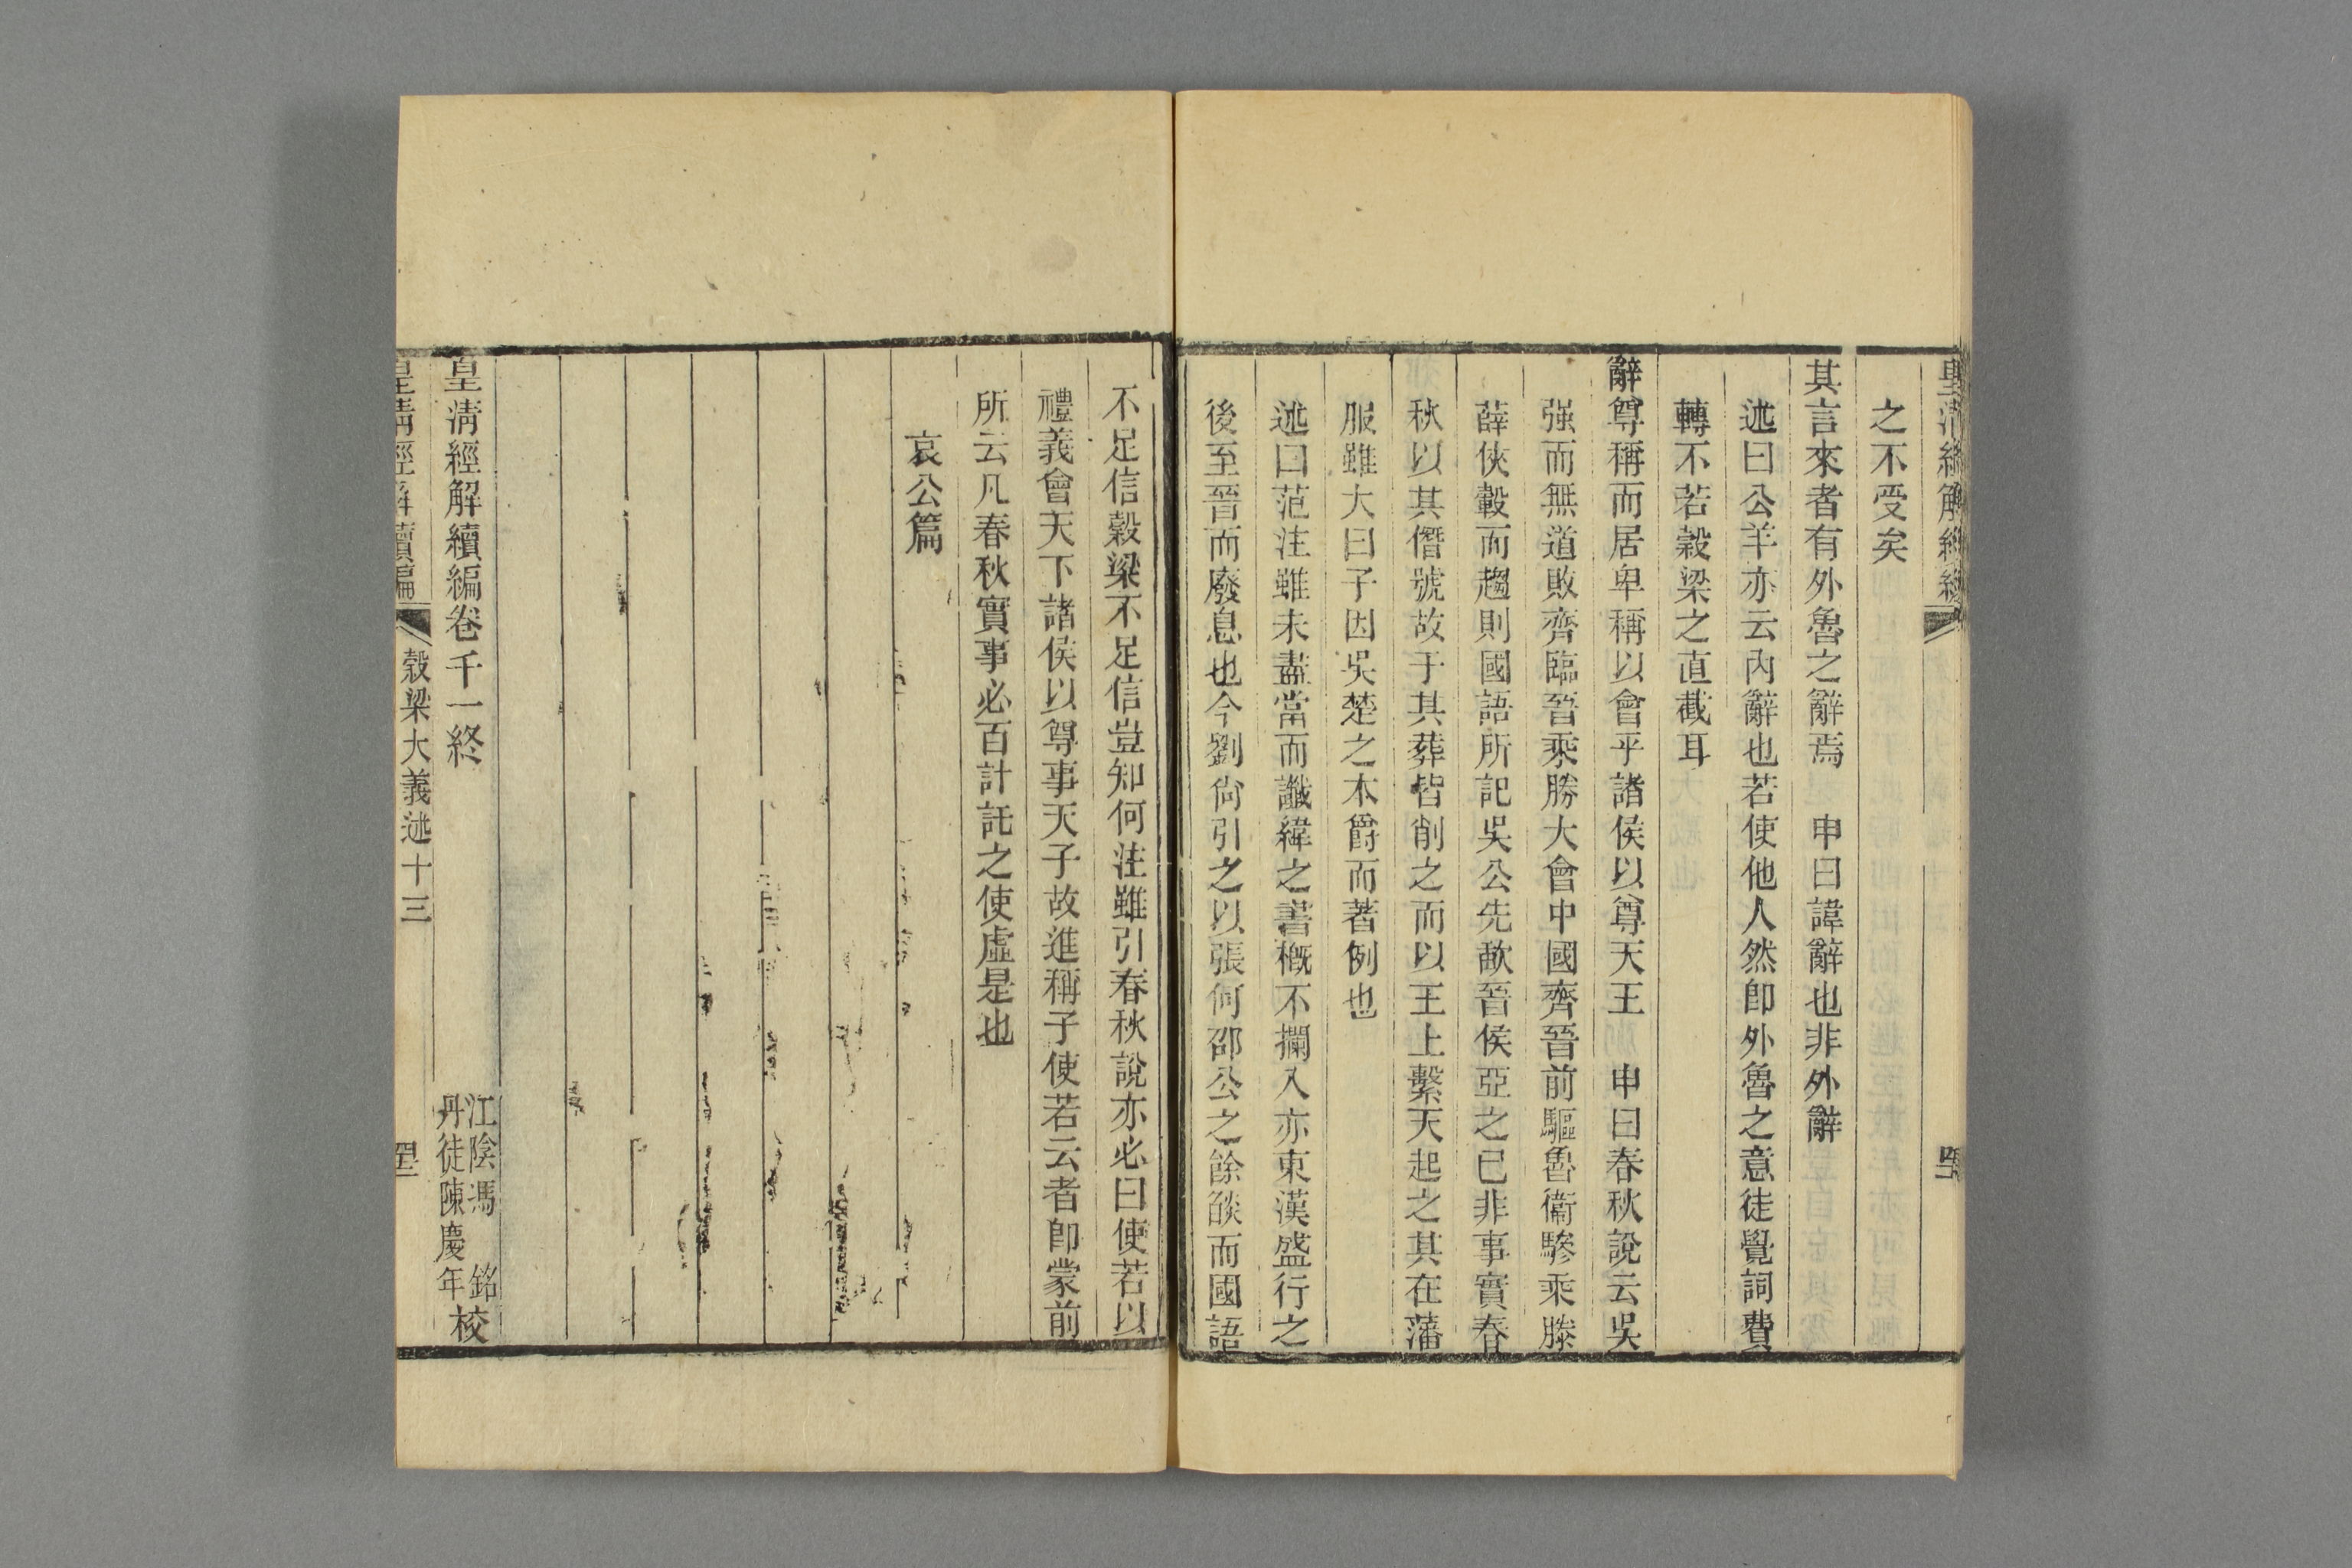 之不受矣
其言來者有外魯之辭焉　申曰諱辭也非外辭
述曰公羊亦云內辭也若使他人然卽外魯之意徒覺詞費
轉不若穀梁之直截耳
辭尊稱而居卑稱以會乎諸侯以尊天王　申曰春秋說云吳
强而無道敗齊臨晉乘勝大會中國齊晉前驅魯衞驂乘滕
薛俠轂而趨則國語所記吳公先歃晉侯亞之已非事實春
秋以其僭號故于其葬皆削之而以王上繫天起之其在藩
服雖大曰子因吳楚之本爵而著例也
述曰范注雖未盡當而讖緯之書概不攔入亦東漢盛行之
後至晉而廢息也今劉尙引之以張何邵公之餘燄而國語
不足信穀梁不足信豈知何注雖引春秋說亦必曰使若以
禮義會天下諸侯以尊事天子故進稱子使若云者卽蒙前
所云凡春秋實事必百計託之使虛是也
哀公篇
皇淸經解續編卷千一終
江陰馮　銘
丹徒陳慶年校
皇淸經解續編
穀梁大義述十三